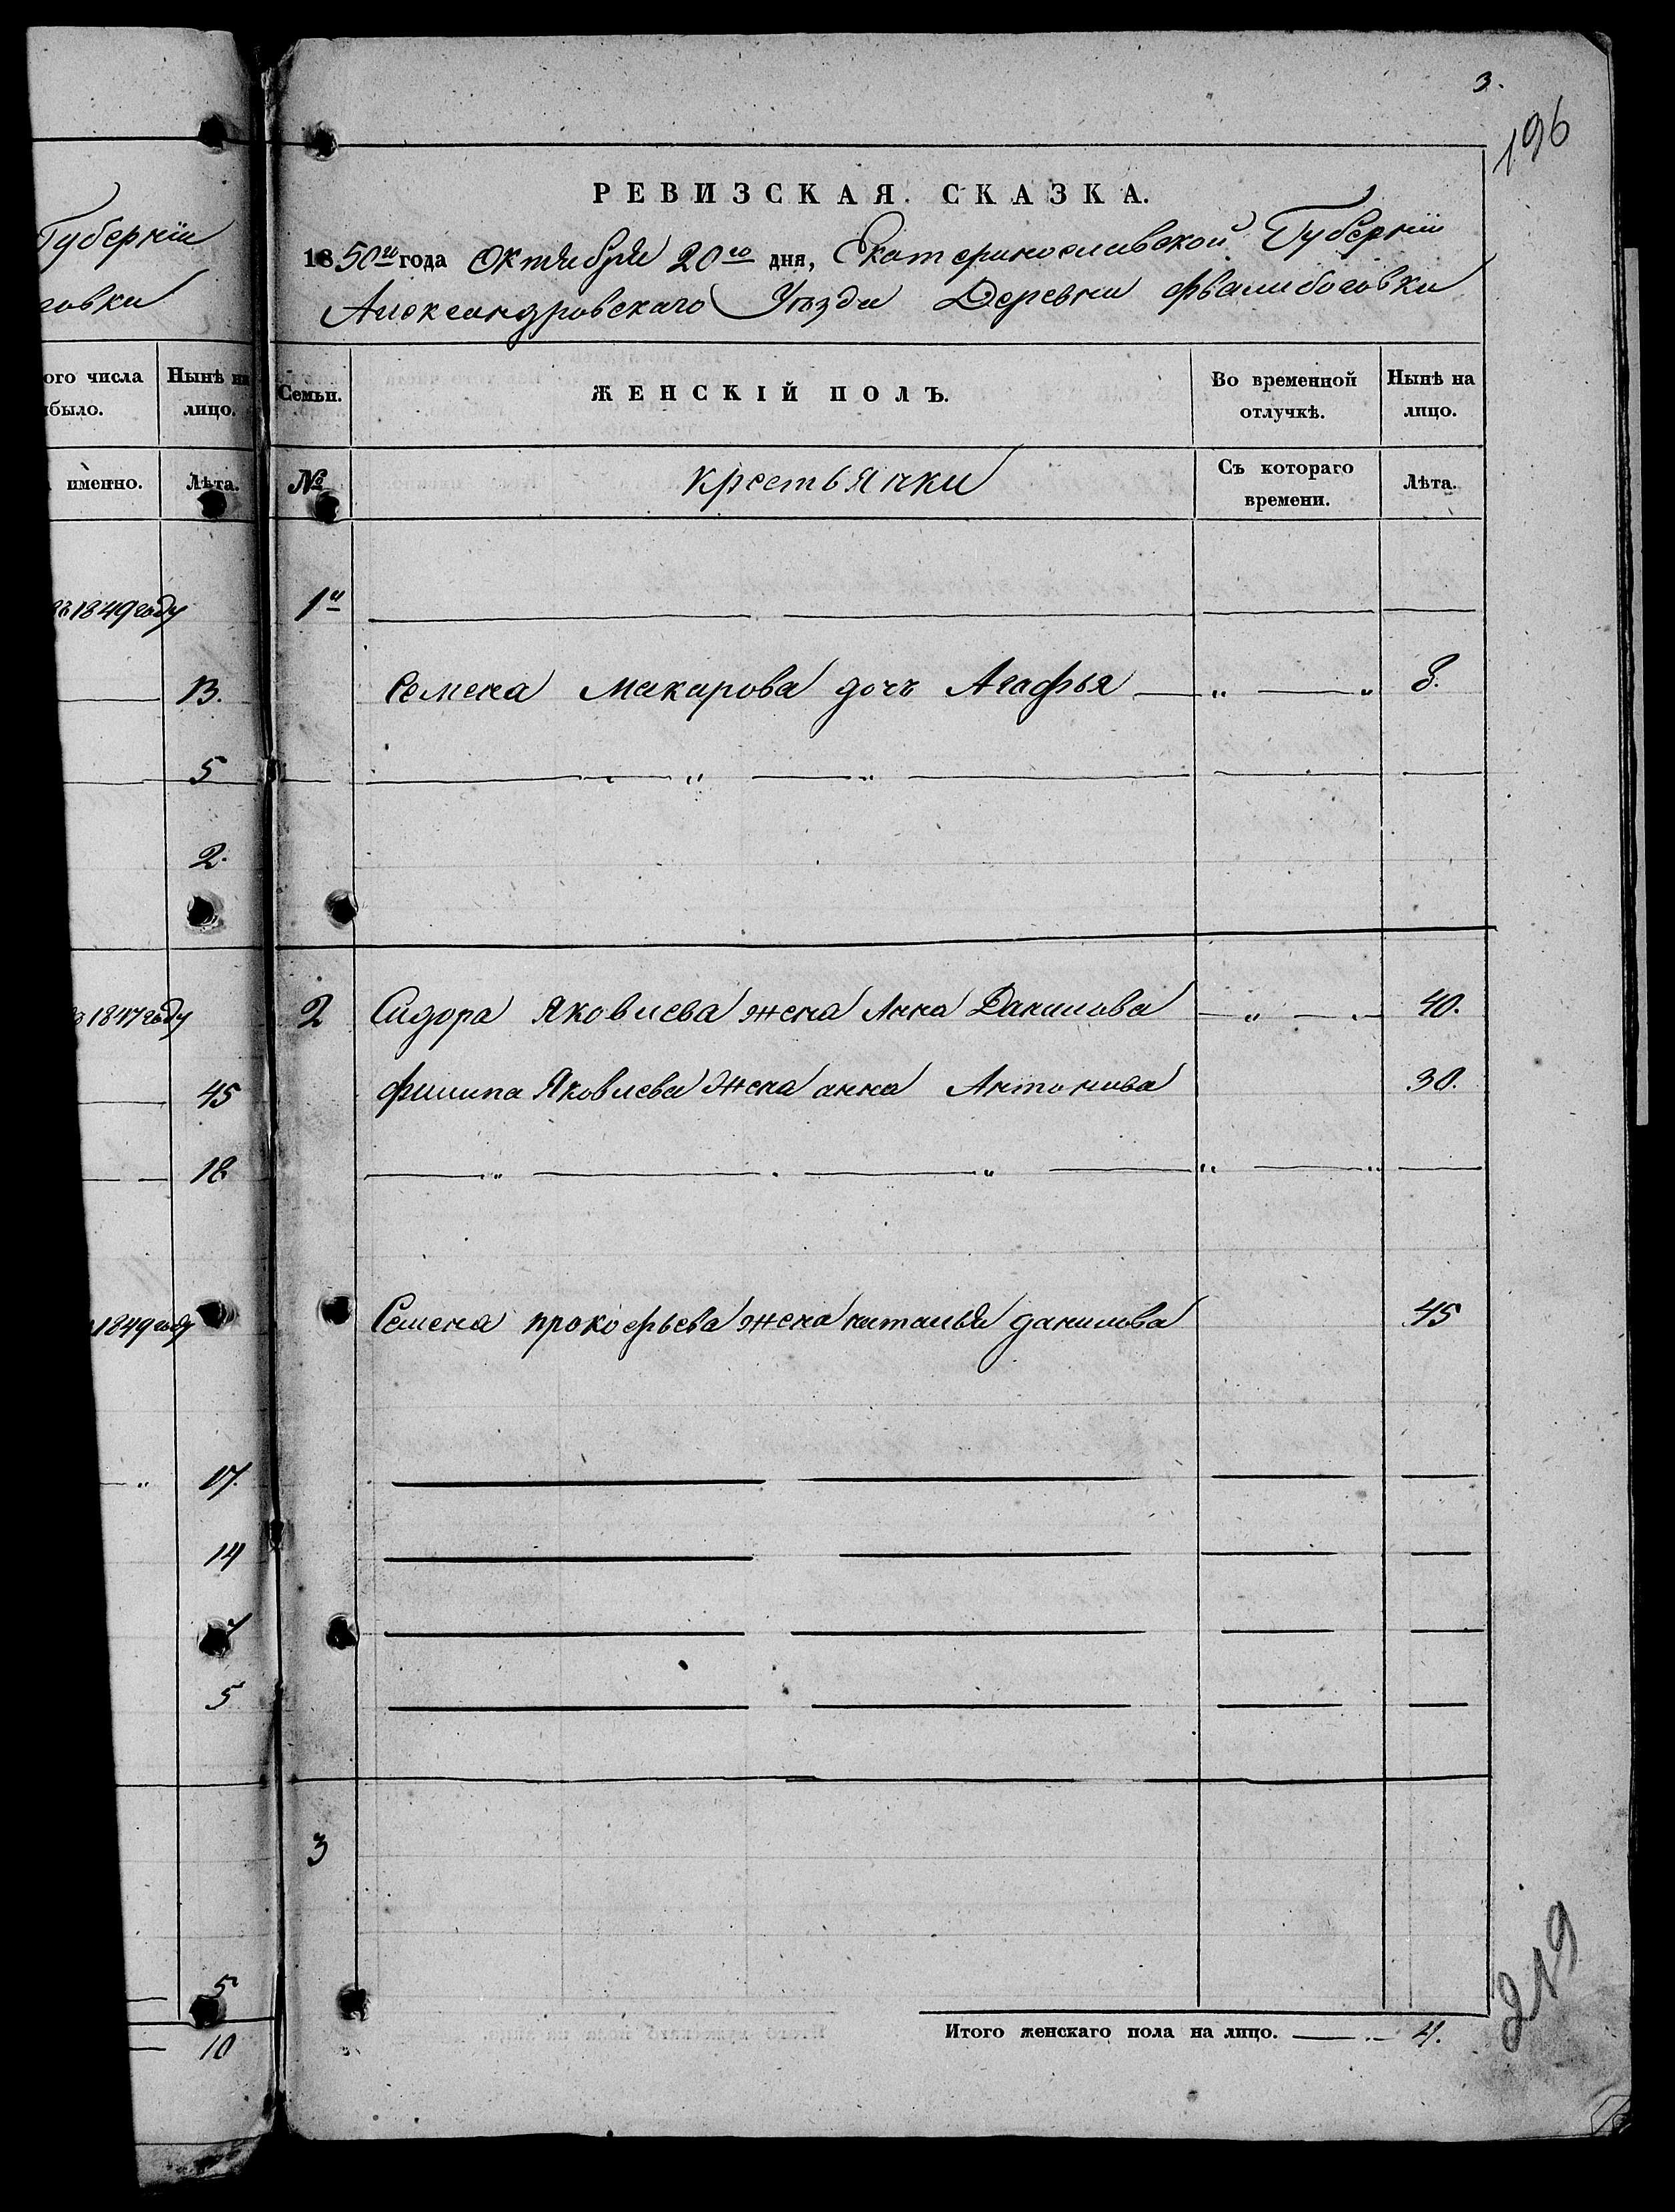 3.
196
Губерніи
овки
ого числа
было.
Нынѣ на
лицо.
именно.
Лѣта.
1849 году
13.
5
2.
1847 году
45
18
1849 году
17.
14
5
5
10
РЕВИЗСКАЯ СКАЗКА.
1850го года Октября 20го дня, Екатеринославской Губерніи
Александровскаго Уѣзда Деревни
Семьи.
ЖЕНСКІЙ ПОЛЪ.
Во временной
отлучкѣ.
Нынѣ на
лицо.
№
крестьянки
Съ котораго
времени.
Лѣта.
1й
Семена Макарова дочь Агафья — „ — „ 8.
2 Сидора Яковлева жена Анна Данилова — „ — 40.
филипа Яковлева Жена анна Антонова 30.
Семена прокофьева жена наталья данилова 45
3
Итого женскаго пола на лицо. — 4.
219